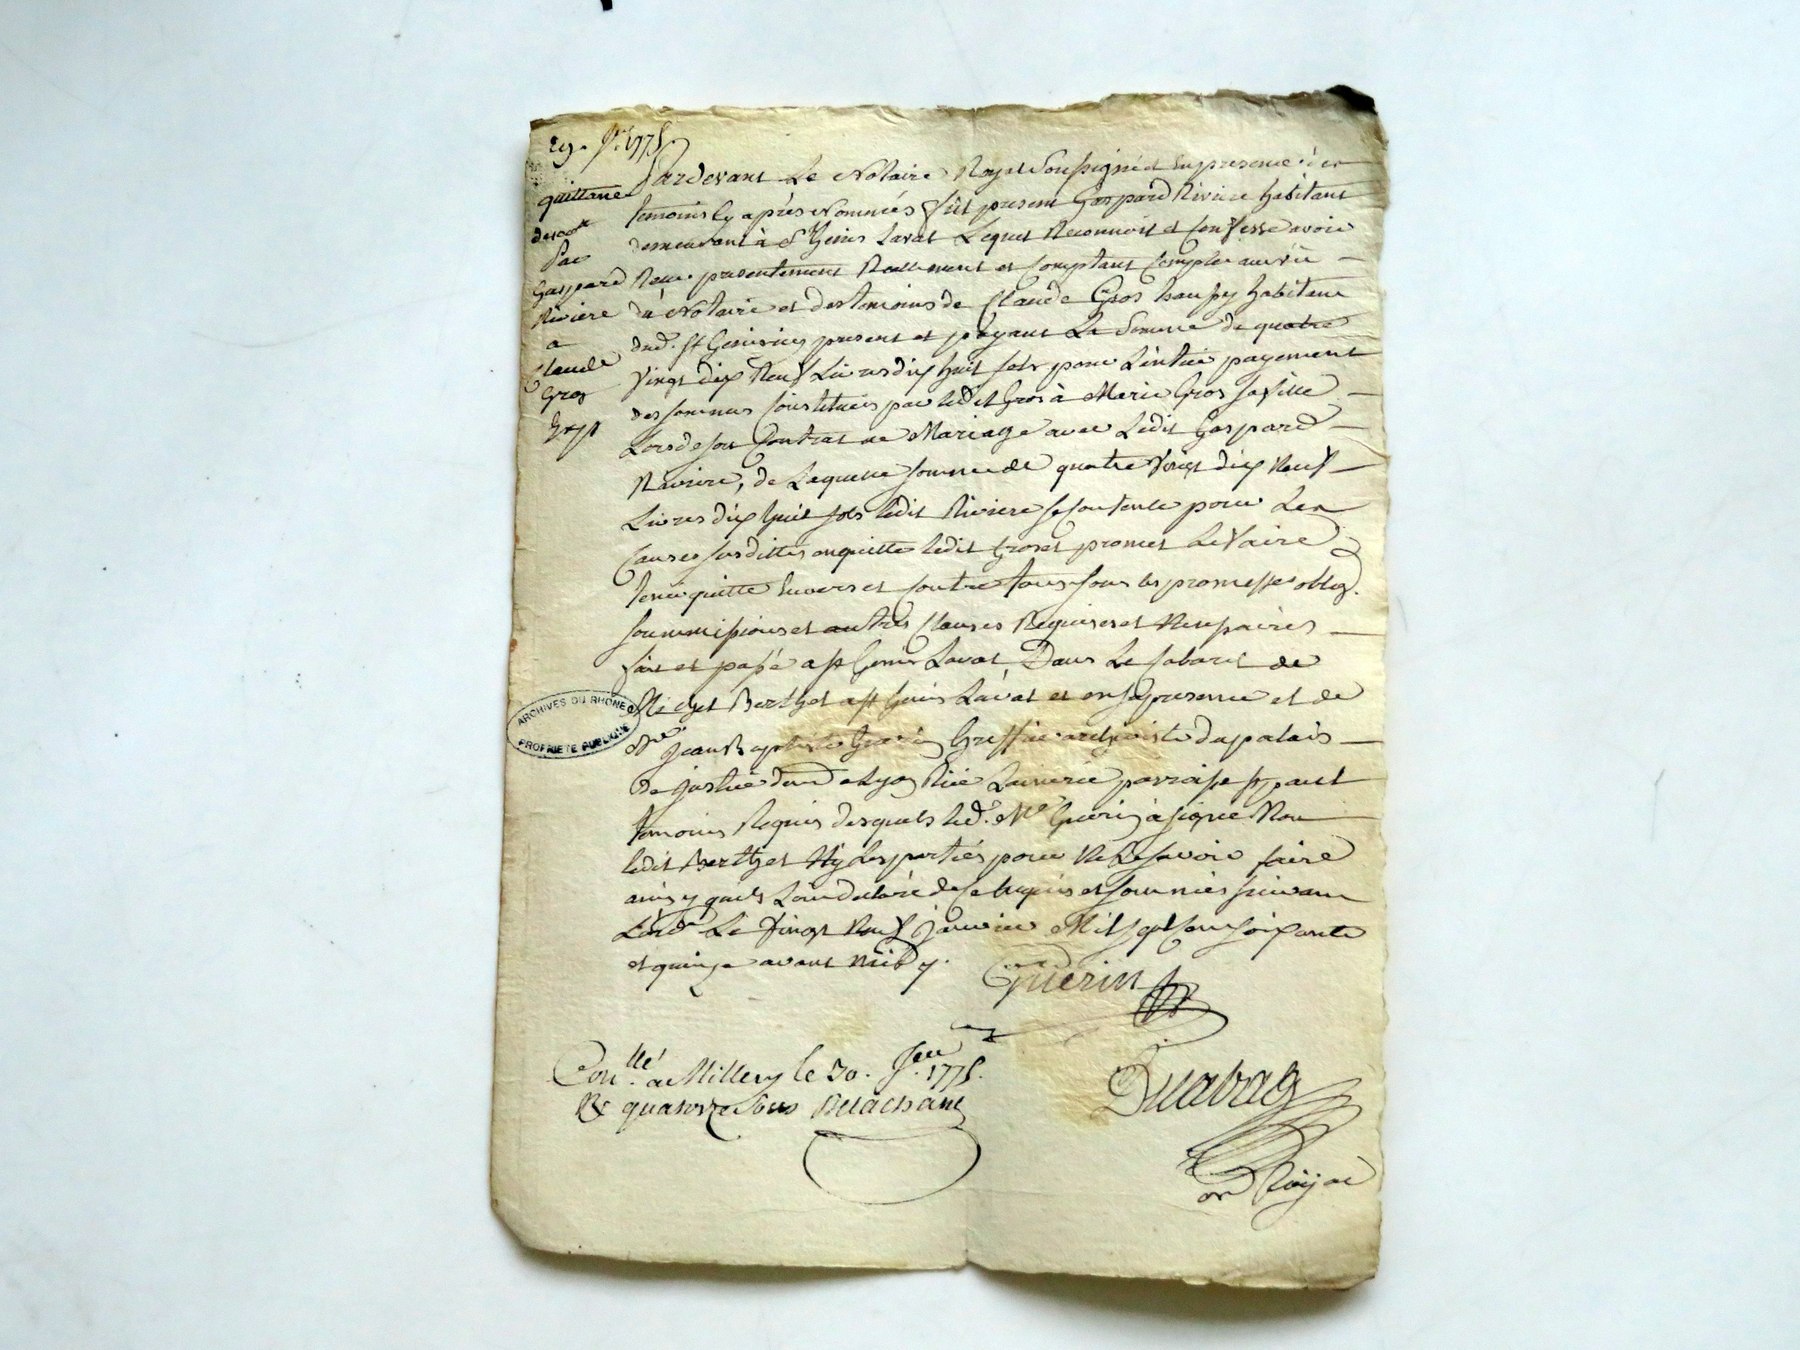 29. Jer. 1775
quittance
de dot
Par
Gaspard
Riviere
a
Claude
Gros
Pardevant Le Notaire Royal Soussigné et En presence des
temoins Cy après Nommés fût present Gaspard Riviere habitant
demeurant à St Genis Laval Lequel Reconnoit et Confesse avoir
Reçu presentement Reellement et Comptant
du Notaire et des temoins de Claude Gros habitant
dud. St Genis icy present et payant La Somme de quatre
vingt dix Neuf Livres dix huit sols pour L'entier payement
des sommes Constituées par ledit Gros à Marie Gros sa fille
Lors de son Contrat de Mariage avec Ledit Gaspard
Riviere, de Laquelle somme de quatre vingt dix Neuf
Livres dix huit sols ledit Riviere se Contente pour Les
Causes susdittes en quitte ledit Gros et promet Le faire
tenir quitte Envers et Contre tous sous les promesses oblig.
soummissions et autres Clauses Requises et
fait et passé a St Genis Laval, Dans Le Cabaret de
Berthet a St Genis Laval et en sa presence et de
Me Jean Baptiste Guerin Greffier du palais
de justice de Lyon Ruë Lainerie parroisse St paul
temoins Requis desquels led. Me Guerin à signé Non
ledit Berthet Ny Les parties pour Ne Le Savoir faire
ainsy quils L'ont declaré de Ce Enquis et sommés suivant
L'ord. Le Vingt Neuf janvier Mil sept Cent soixante
et quinze avant Midy.
Guerin
Conllé a Millery le 30. Jer. 1775.
Rx quatorze Sous Delachant
Royal
ARCHIVES DU RHONE
PROPRIETE PUBLIQUE